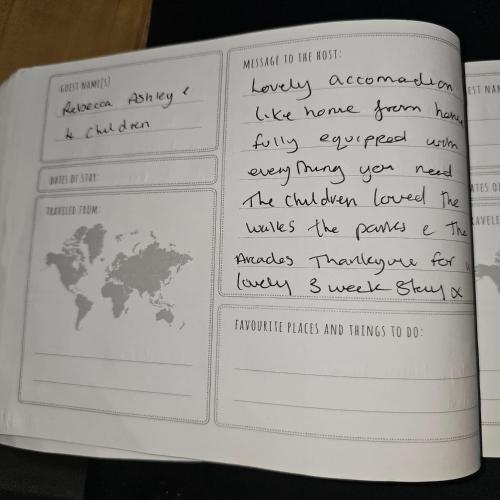 GUEST NAME(S)
Rebecca Ashley &
4 Children
DATES OF STAY:
TRAVELED FROM:
MESSAGE TO THE HOST:
Lovely accomadion
like home from home
fully equipped with
everything you need
The children loved the
walks the parks & the
Arcades Thankyou for
lovely 3 week stay x
FAVOURITE PLACES AND THINGS TO DO: